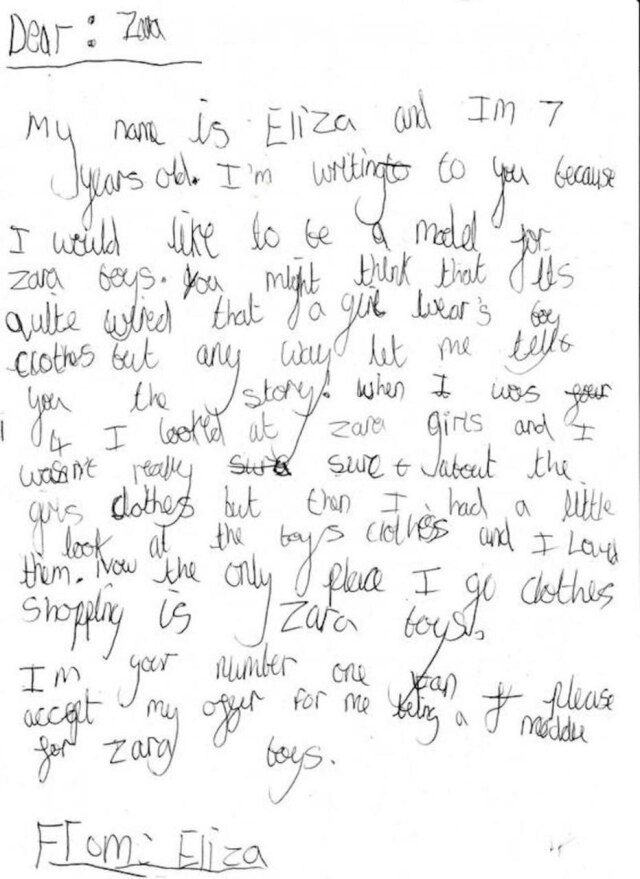 Dear : Zara
My name is Eliza and Im 7
years old. I'm writing to to you because
I would like to be a model for
zara boys. You might think that its
quite wired that a girl wear's boy
clothes but any way let me tell
you the story! when I was four
4 I looked at zara girls and I
wasn't really sure sure about the
girls clothes but then I had a little
look at the boys clothes and I Loved
them. Now the only place I go clothes
shopping is Zara boys.
Im your number one fan please
accept my offer for me being a moddle
for zara boys.
From: Eliza